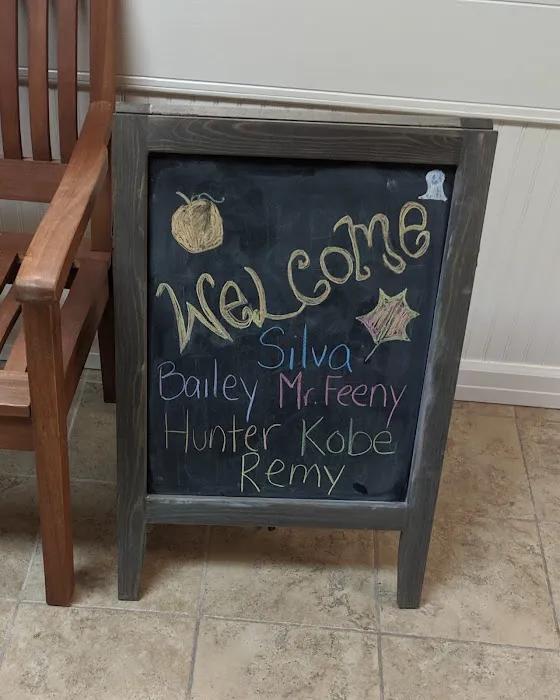 Welcome
Silva
Bailey Mr. Feeny
Hunter Kobe
Remy